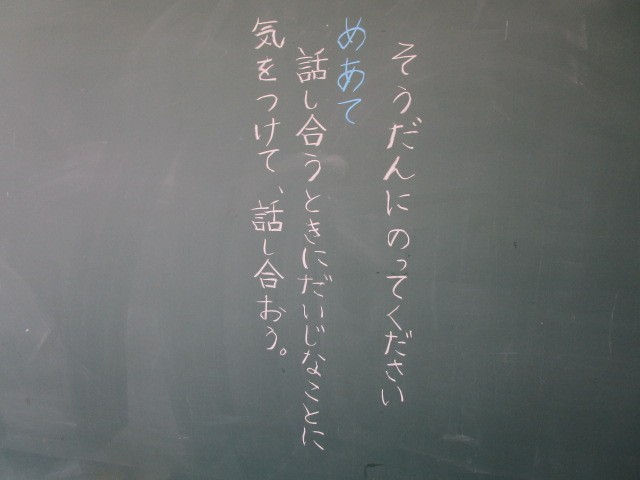 そうだんにのってください
めあて
話し合うときにだいじなことに
気をつけて、話し合おう。